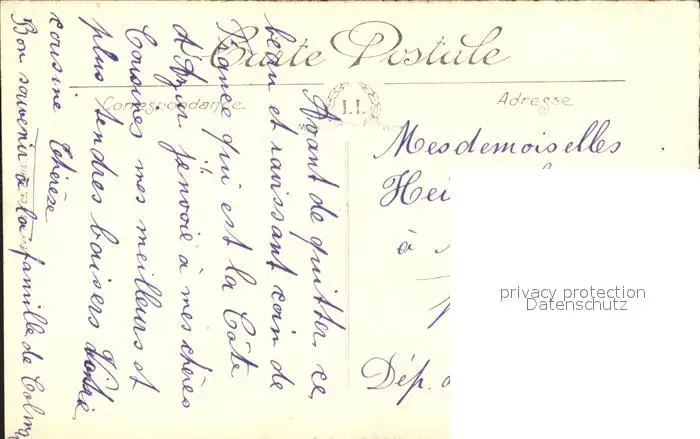 Carte Postale
Correspondance
Adresse
LL
Avant de quitter ce
beau et ravissant coin de
France qui est la Côte
d'Azur j'envoie à mes chères
Cousines mes meilleurs et
plus tendres baisers Votre
cousine Thérèse
Bon souvenir à la famille de Colmar
Mesdemoiselles
Hei
à
Dép.
privacy protection
Datenschutz